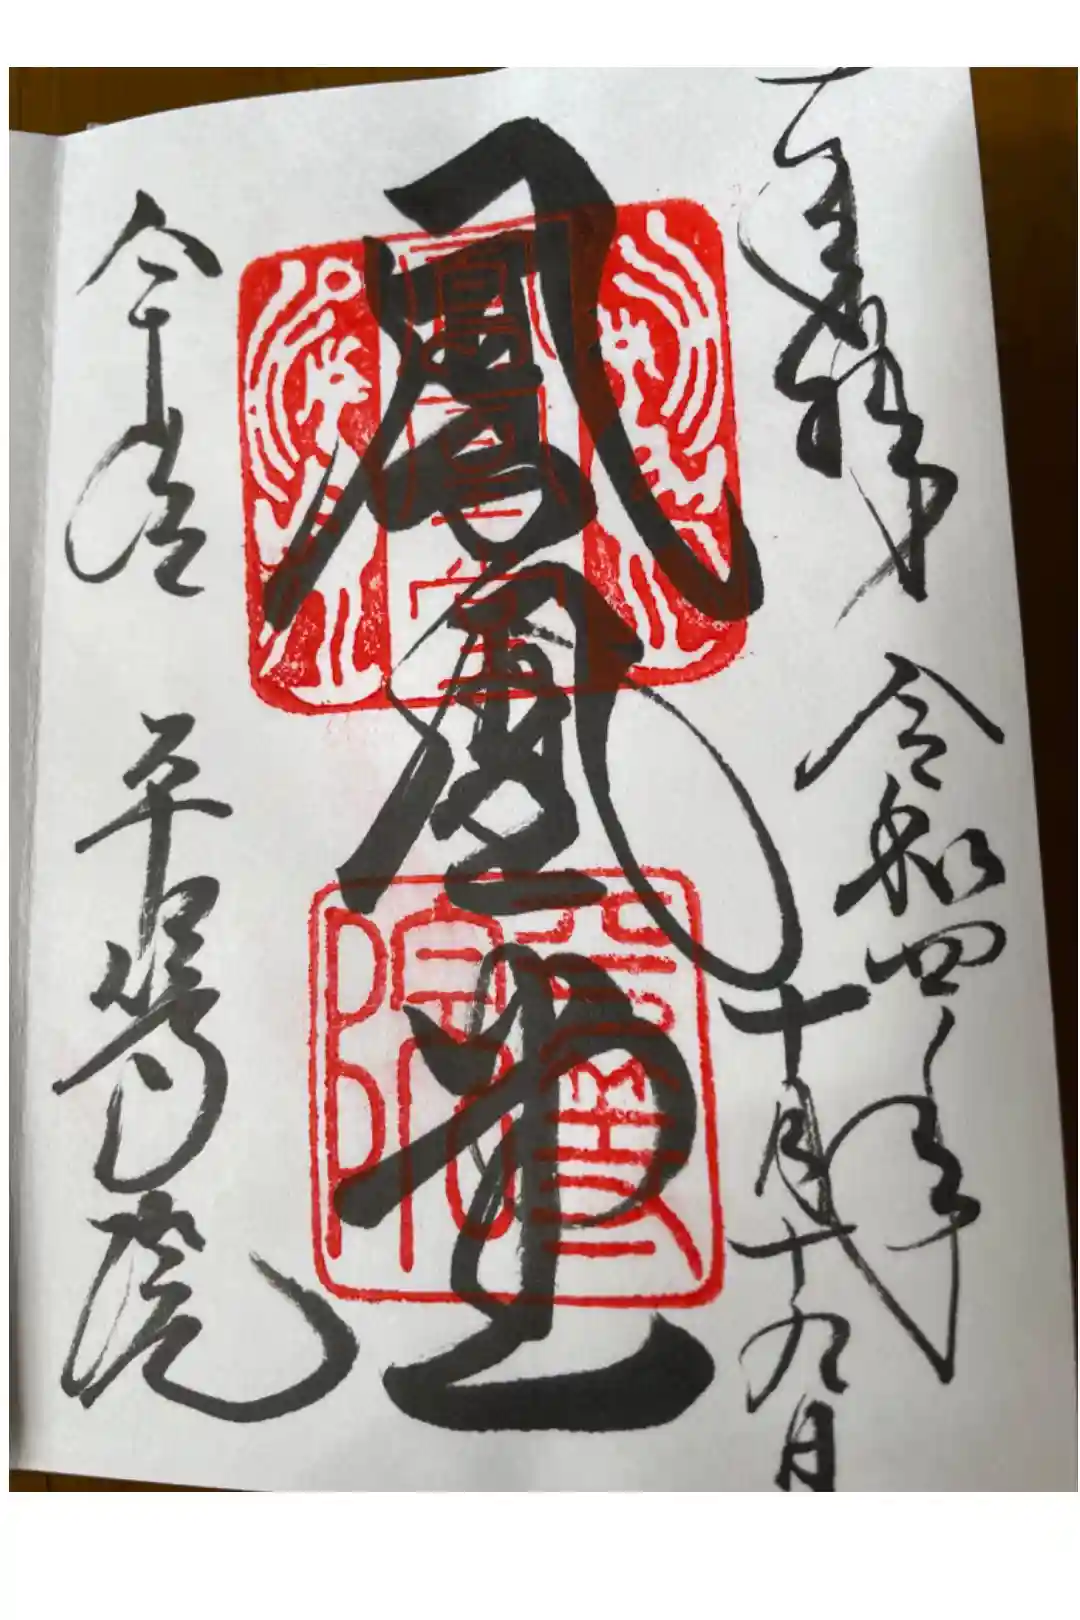 令和四年
十月十九日
鳳凰堂
鳳凰堂
平等院
宇治 平等院